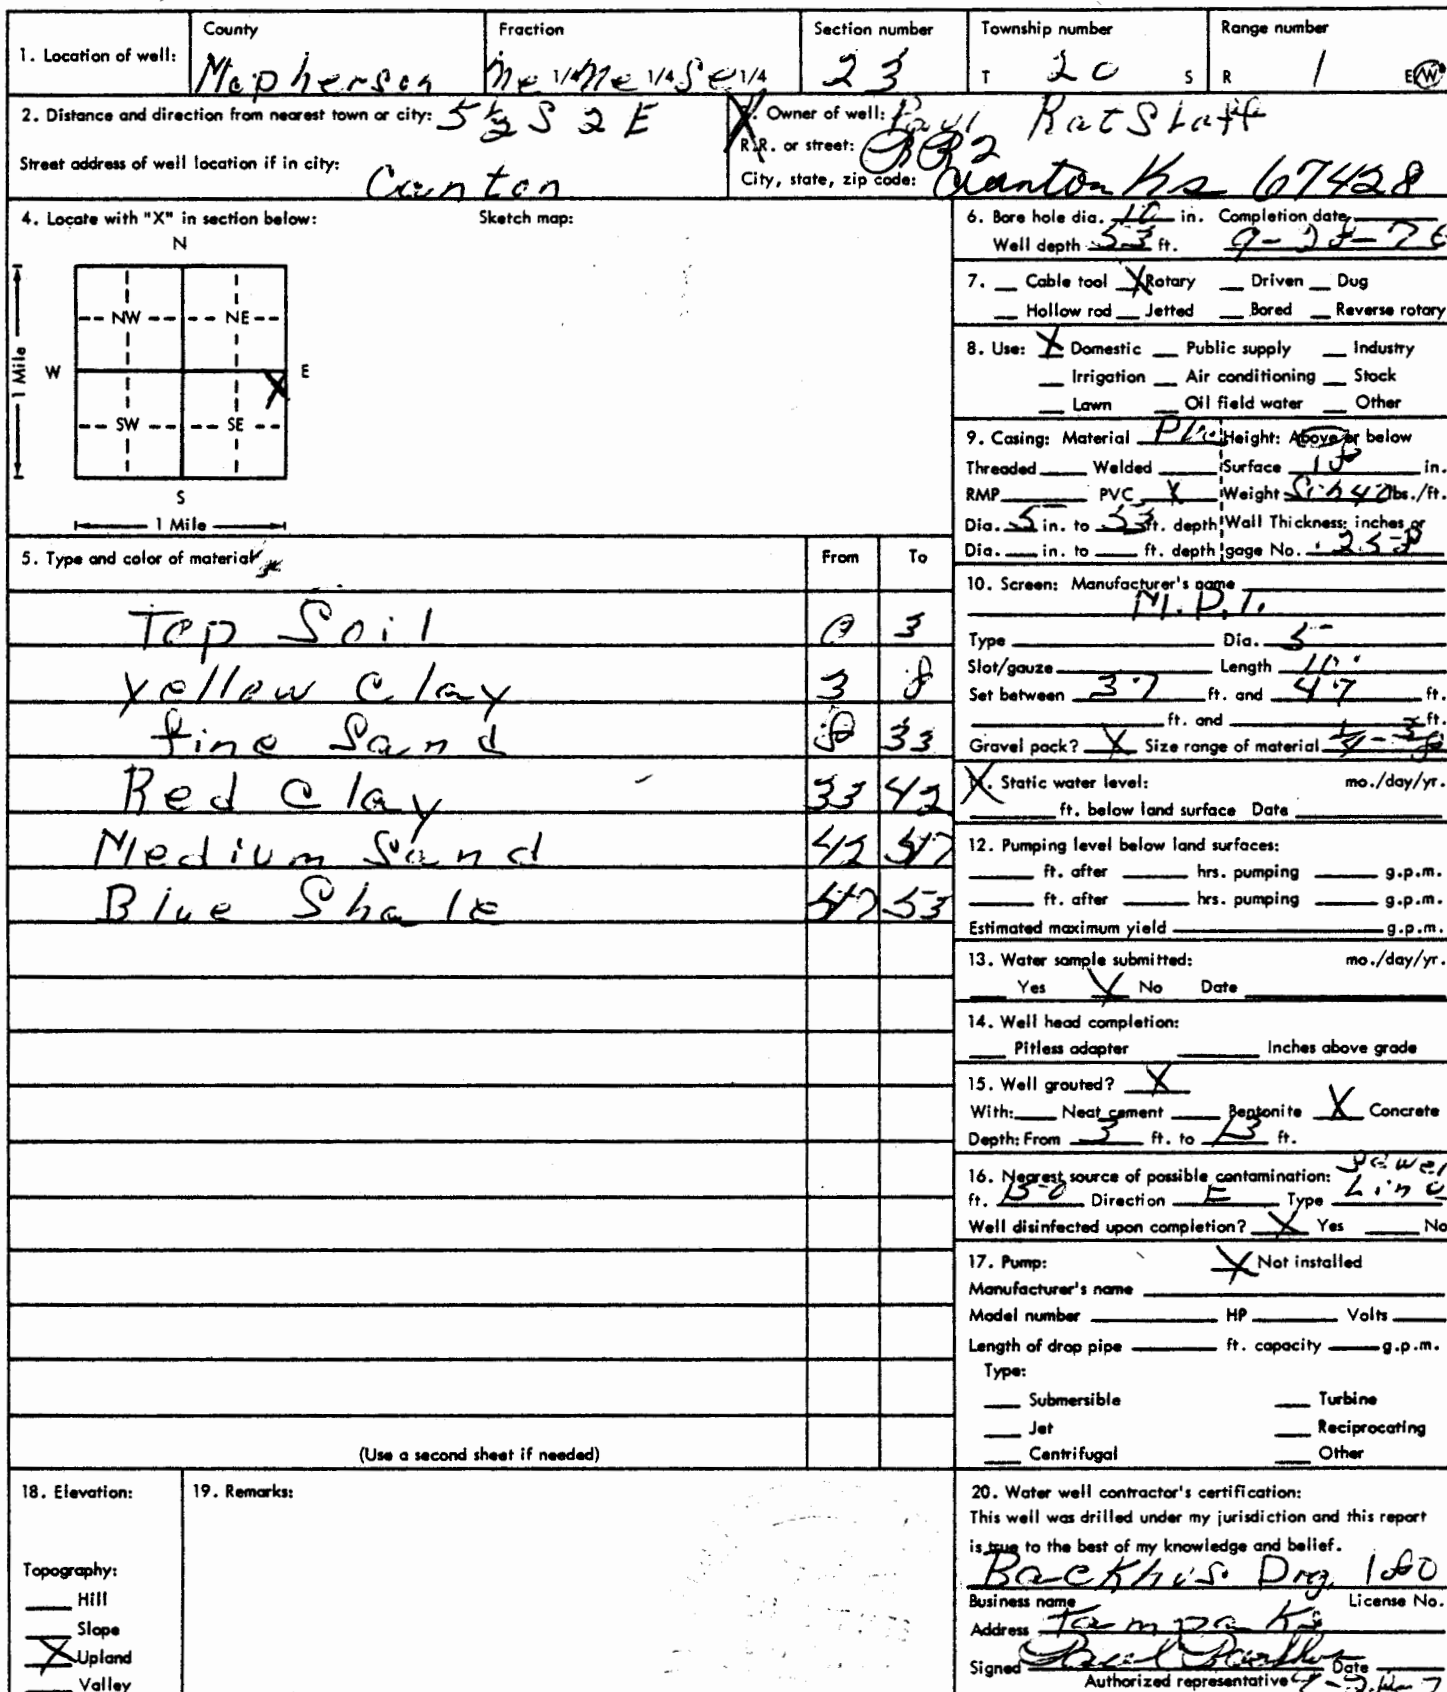 County Fraction Section number Township number Range number
1. Location of well: Mcpherson Ne 1/4 Ne 1/4 Se 1/4 23 T 20 S R 1 E/W
2. Distance and direction from nearest town or city: 5 1/2 S 2 E
Street address of well location if in city: Canton
3. Owner of well: Paul Ratzlaff
R.R. or street: RR2
City, state, zip code: Canton Ks 67428
4. Locate with "X" in section below: Sketch map:
N
NW NE
W E
X
SW SE
S
1 Mile
1 Mile
5. Type and color of material From To
Top Soil 0 3
Yellow Clay 3 8
fine Sand 8 33
Red Clay 33 42
Medium Sand 42 47
Blue Shale 47 53
(Use a second sheet if needed)
6. Bore hole dia. 10 in. Completion date
Well depth 53 ft. 9-28-76
7. Cable tool X Rotary Driven Dug
Hollow rod Jetted Bored Reverse rotary
8. Use: X Domestic Public supply Industry
Irrigation Air conditioning Stock
Lawn Oil field water Other
9. Casing: Material Height: Above or below
Threaded Welded Surface 18 in.
RMP PVC X Weight Sch 40 lbs./ft.
Dia. 5 in. to 53 ft. depth Wall Thickness: inches or
Dia. in. to ft. depth gage No. .258
10. Screen: Manufacturer's name
M.P.I.
Type Dia. 5
Slot/gauze Length 10'
Set between 37 ft. and 47 ft.
ft. and ft.
Gravel pack? X Size range of material 1/4 - 3/8
X. Static water level: mo./day/yr.
ft. below land surface Date
12. Pumping level below land surfaces:
ft. after hrs. pumping g.p.m.
ft. after hrs. pumping g.p.m.
Estimated maximum yield g.p.m.
13. Water sample submitted: mo./day/yr.
Yes X No Date
14. Well head completion:
Pitless adapter Inches above grade
15. Well grouted? X
With: Neat cement Bentonite X Concrete
Depth: From 3 ft. to 13 ft.
16. Nearest source of possible contamination: Sewer
ft. 150 Direction E Type Line
Well disinfected upon completion? X Yes No
17. Pump: X Not installed
Manufacturer's name
Model number HP Volts
Length of drop pipe ft. capacity g.p.m.
Type:
Submersible Turbine
Jet Reciprocating
Centrifugal Other
18. Elevation:
Topography:
Hill
Slope
X Upland
Valley
19. Remarks:
20. Water well contractor's certification:
This well was drilled under my jurisdiction and this report
is true to the best of my knowledge and belief.
Backhus Drg. 180
Business name License No.
Address Tampa Ks
Signed Date
Authorized representative